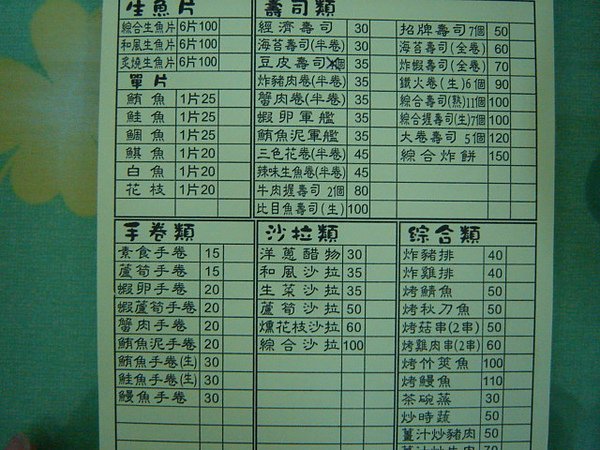 生魚片
綜合生魚片 6片100
和風生魚片 6片100
炙燒生魚片 6片100
單片
鮪魚 1片25
鮭魚 1片25
鯛魚 1片25
鯕魚 1片20
白魚 1片20
花枝 1片20
壽司類
經濟壽司 30
海苔壽司(半卷) 30
豆皮壽司 個 35
炸豬肉卷(半卷) 35
蟹肉卷(半卷) 35
蝦卵軍艦 35
鮪魚泥軍艦 35
三色花卷(半卷) 45
辣味生魚卷(半卷) 45
牛肉握壽司 2個 80
比目魚壽司(生) 100
招牌壽司 7個 50
海苔壽司(全卷) 60
炸蝦壽司(全卷) 70
鐵火卷(生) 6個 90
綜合壽司(熟) 11個 100
綜合握壽司(生) 7個 100
大卷壽司 5個 120
綜合炸餅 150
手卷類
素食手卷 15
蘆筍手卷 15
蝦卵手卷 20
蝦蘆筍手卷 20
蟹肉手卷 20
鮪魚泥手卷 20
鮪魚手卷(生) 30
鮭魚手卷(生) 30
鰻魚手卷 30
沙拉類
洋蔥醋物 30
和風沙拉 35
生菜沙拉 35
蘆筍沙拉 50
燻花枝沙拉 60
綜合沙拉 100
綜合類
炸豬排 40
炸雞排 40
烤鯖魚 50
烤秋刀魚 50
烤菇串(2串) 50
烤雞肉串(2串) 60
烤竹莢魚 100
烤鰻魚 110
茶碗蒸 30
炒時蔬 50
薑汁炒豬肉 50
薑汁炒牛肉 70